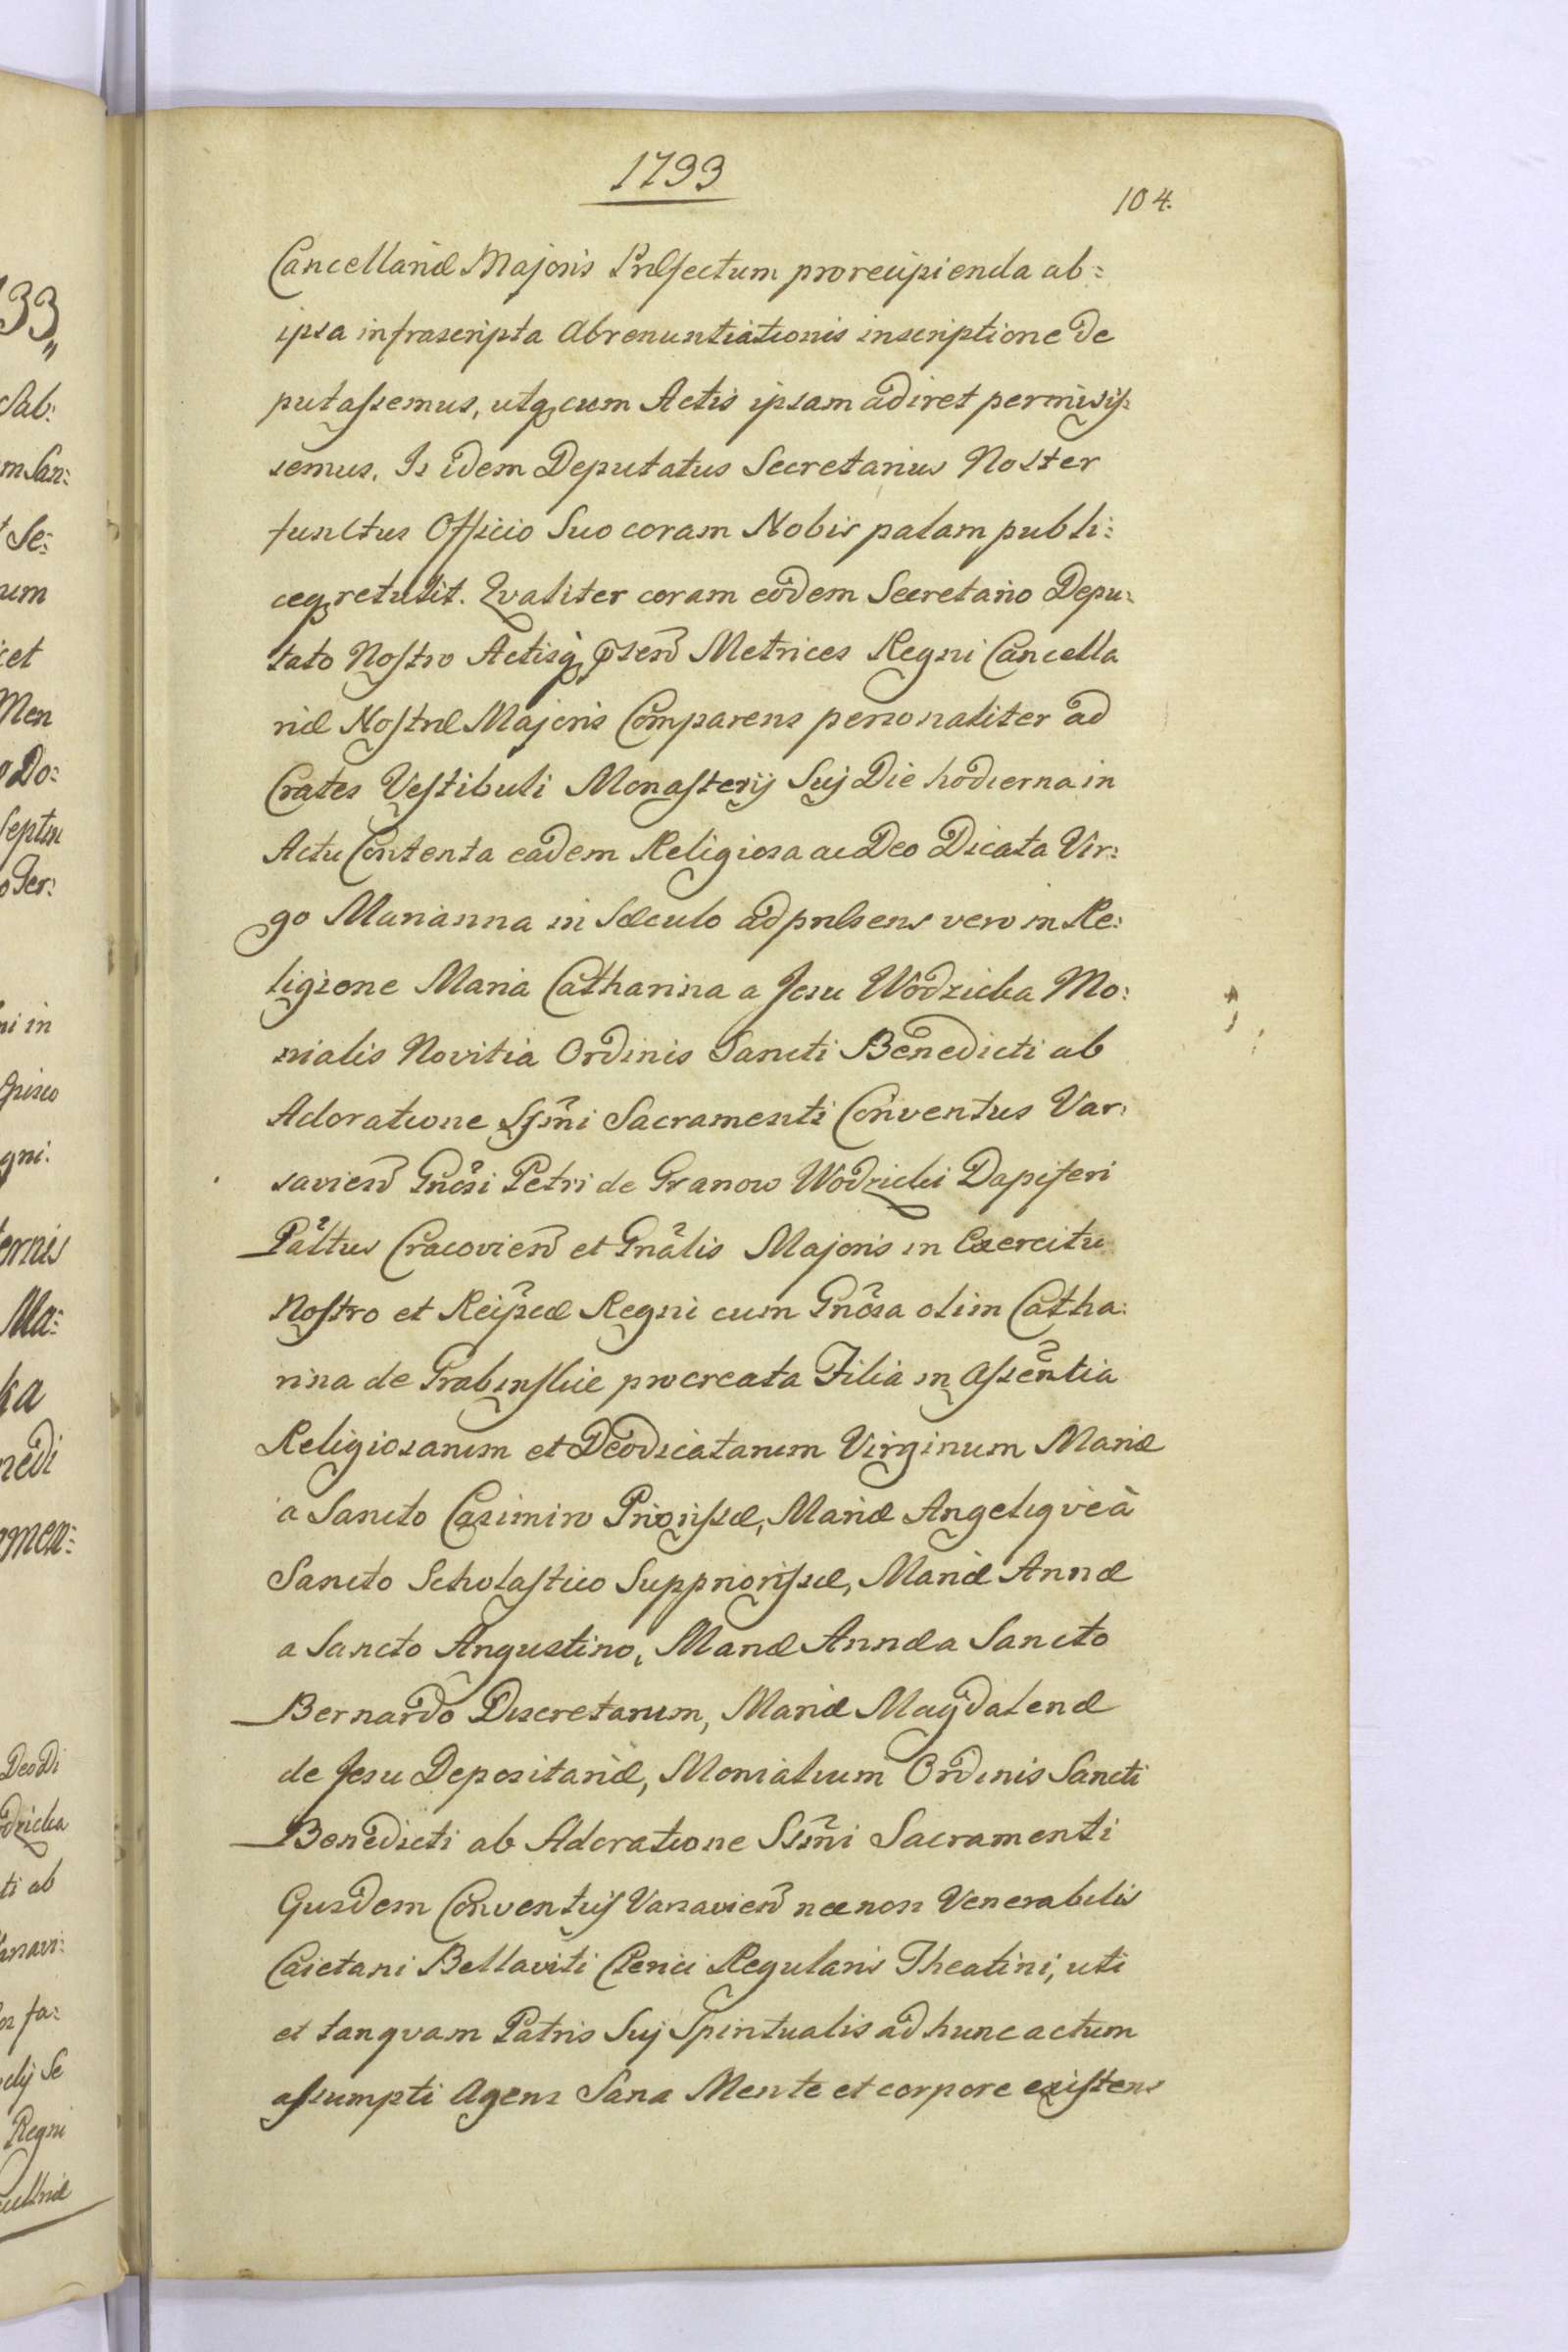 1793
104.
Cancellariæ Majoris Præfectum pro recipienda ab=
ipsa infrascripta Abrenuntiationis inscriptione de
putassemus, utq cum Actis ipsam adiret permisis=
semus. Is idem Deputatus Secretarius Noster
functus Officio Suo coram Nobis palam publi=
ceq retulit. Qvaliter coram eodem Secretario Depu=
tato Nostro Actisq pñtsen Metrices Regni Cancella
riæ Nostræ Majoris Comparens personaliter ad
Crates Vestibuli Monasterij Sui Die hodierna in
Actu Contenta eadem Religiosa ac Deo Dicata Vir=
go Marianna in Sæculo ad præsens vero in Re=
ligione Maria Catharina a Jesu Wodzicka Mo=
nialis Novitia Ordinis Sancti Benedicti ab
Adoratione Ssmi Sacramenti Conventus Var=
savien Gnosi Petri de Granow Wodzicki Dapiferi
Paltus Cracovien et Gnalis Majoris in Exercitu
Nostro et Reipcæ Regni cum Gnosa olim Catha=
rina de Grabinskie procreata Filia in Assentia
Religiosarum et Deodicatarum Virginum Mariæ
a Sancto Casimiro Priorissæ, Mariæ Angeliqve à
Sancto Scholastico Suppriorissæ, Mariæ Annæ
a Sancto Angustino, Mariæ Annæ a Sancto
Bernardo Discretarum, Mariæ Magdalenæ
de Jesu Depositariæ, Monialium Ordinis Sancti
Benedicti ab Adoratione Ssmi Sacramenti
Ejusdem Conventus Varsavien nec non Venerabilis
Caietani Bellaviti Clerici Regularis Theatini, uti
et tanqvam Patris Sui Spiritualis ad hunc actum
assumpti Agens Sana Mente et corpore existens
133,,
Sab:
m San:
t Se:
um
cet
Men
Do:
Septm
o Ter:
ni in
Episco
gni.
ernis
Ma:
ka
nedi
men:
Deo Di
dzicka
ti ab
arsavi:
fa:
Se
Regni